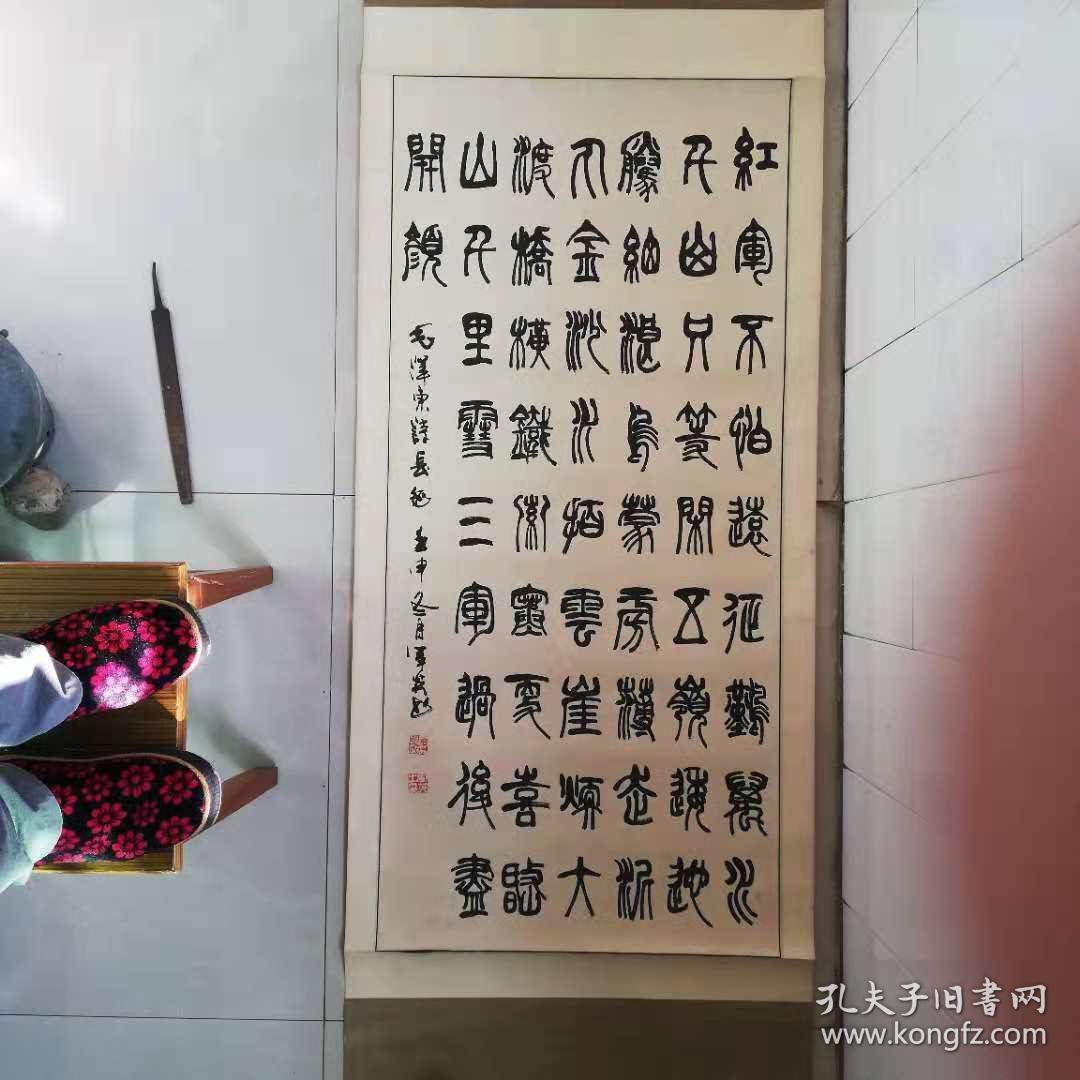 紅軍不怕遠征難萬水
千山只等閑五嶺逶迤
騰細浪烏蒙磅礴走泥
丸金沙水拍雲崖煖大
渡橋橫鐵索寒更喜岷
山千里雪三軍過後盡
開顏
毛澤東詩長征 壬申冬月
孔夫子旧書网
www.kongfz.com